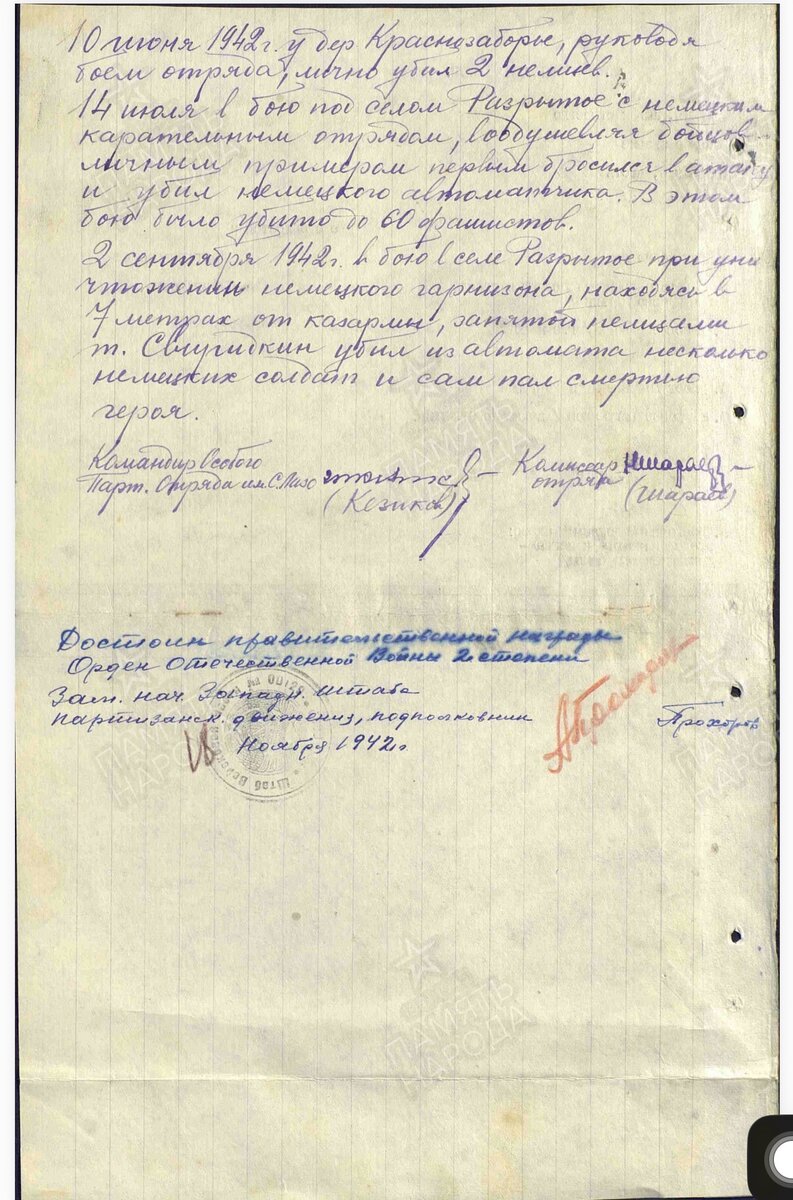 10 июня 1942 г. у дер Краснозаборье, руководя
боем отряда, лично убил 2 немцев.
14 июля в бою под селом Разрытое с немецким
карательным отрядом, воодушевляя бойцов
личным примером первым бросился в атаку
и убил немецкого автоматчика. В этом
бою было убито до 60 фашистов.
2 сентября 1942 г. в бою в селе Разрытое при уни
чтожении немецкого гарнизона, находясь в
7 метрах от казармы, занятой немцами
т. Свиридкин убил из автомата несколько
немецких солдат и сам пал смертью
героя.
Командир Особого
Парт. Отряда им. С. Лазо
(Козиков)
Комиссар
отряда
(Шараев)
Достоин правительственной награды
Орден Отечественной Войны 2 степени
Зам. нач. Западн. Штаба
партизанск. движения, подполковник
Прохоров
18 Ноября 1942 г
ПАМЯТЬ
НАРОДА